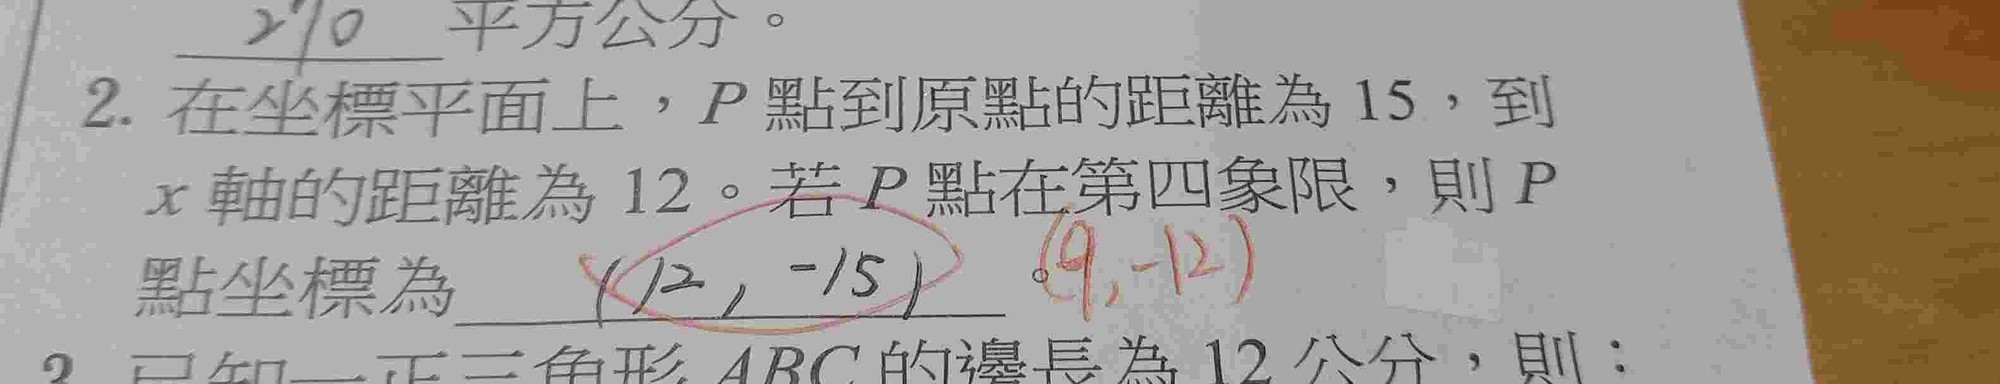 270 平方公分。
2. 在坐標平面上，P 點到原點的距離為 15，到
x 軸的距離為 12。若 P 點在第四象限，則 P
點坐標為 (12, -15) 。(9, -12)
3. 已知一正三角形 ABC 的邊長為 12 公分，則：